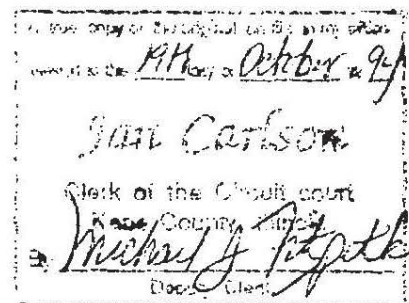 true copy of the original on file in my office
the 19th day of October 94
Jan Carlson
Clerk of the Circuit court
Kane County
Michael J Fitzpatrick
Deputy Clerk